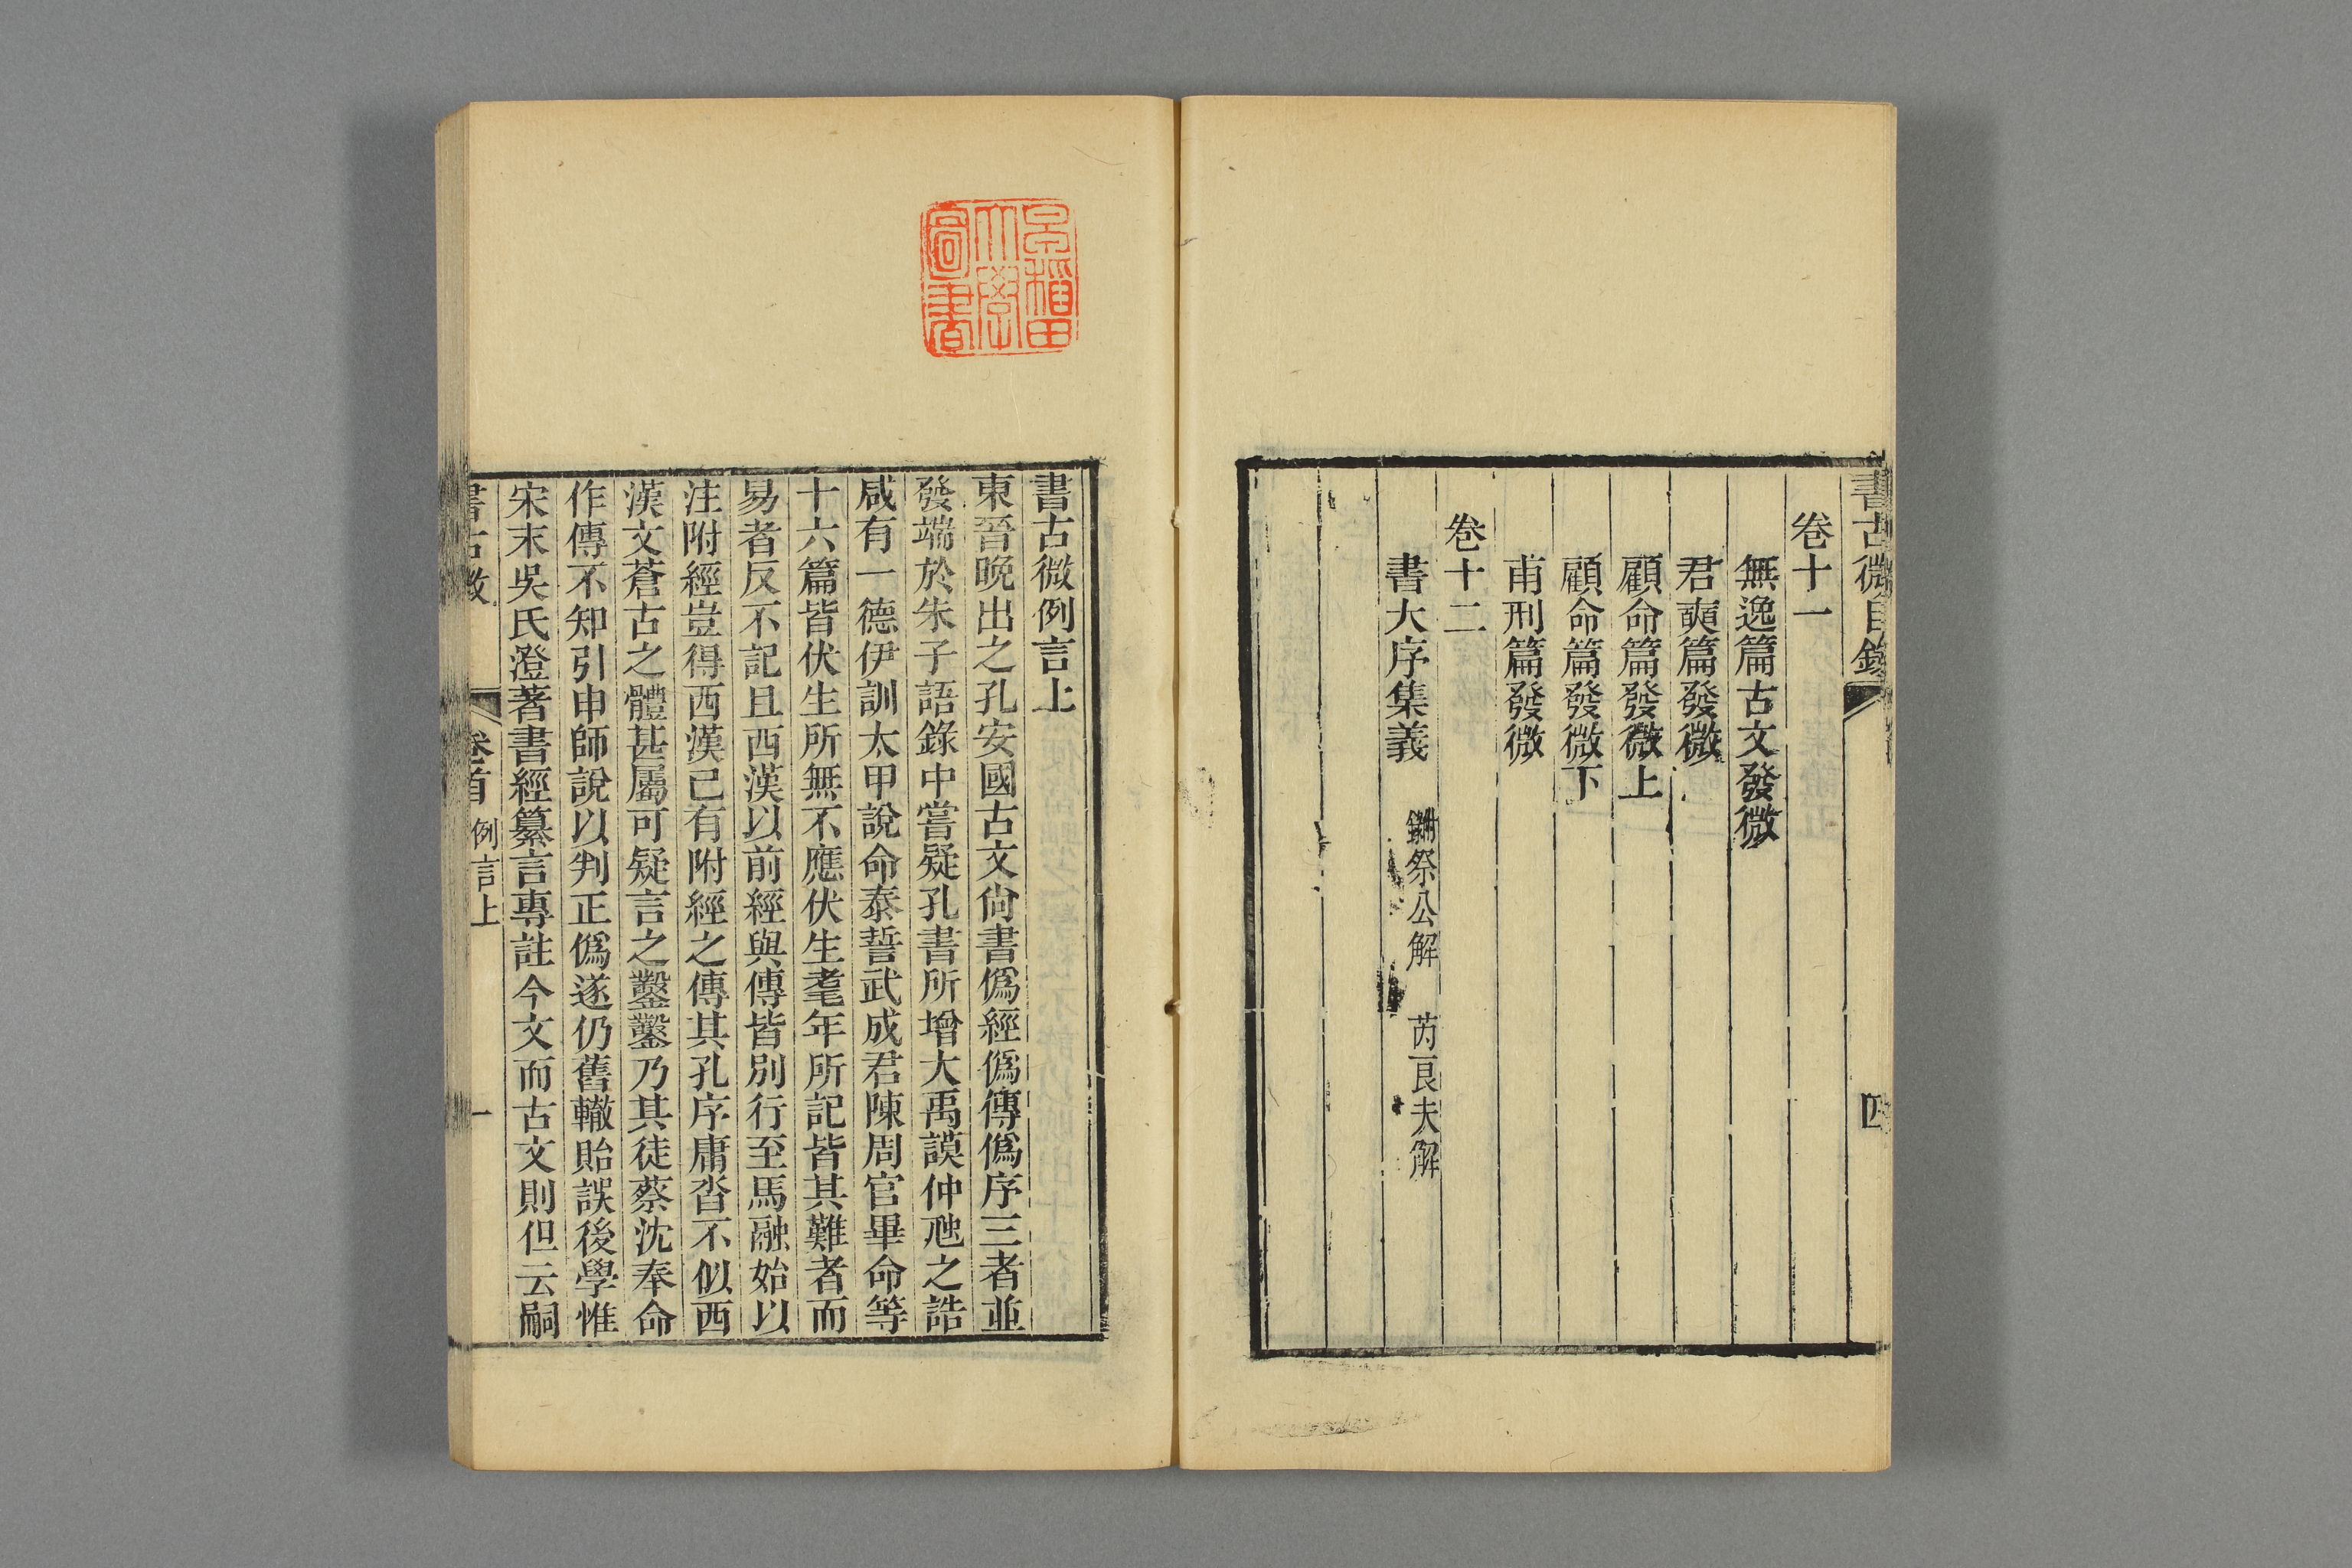 書古微目錄
四
卷十一
無逸篇古文發微
君奭篇發微
顧命篇發微上
顧命篇發微下
甫刑篇發微
卷十二
書大序集義
祭公解 芮良夫解
早稻田大學圖書
書古微例言上
東晉晚出之孔安國古文尙書僞經僞傳僞序三者並
發端於朱子語錄中嘗疑孔書所增大禹謨仲虺之誥
咸有一德伊訓太甲說命泰誓武成君陳周官畢命等
十六篇皆伏生所無不應伏生耄年所記皆其難者而
易者反不記且西漢以前經與傳皆別行至馬融始以
注附經豈得西漢已有附經之傳其孔序庸沓不似西
漢文蒼古之體甚屬可疑言之鑿鑿乃其徒蔡沈奉命
作傳不知引申師說以判正僞遂仍舊轍貽誤後學惟
宋末吳氏澄著書經纂言專註今文而古文則但云嗣
書古微
卷首 例言上
一